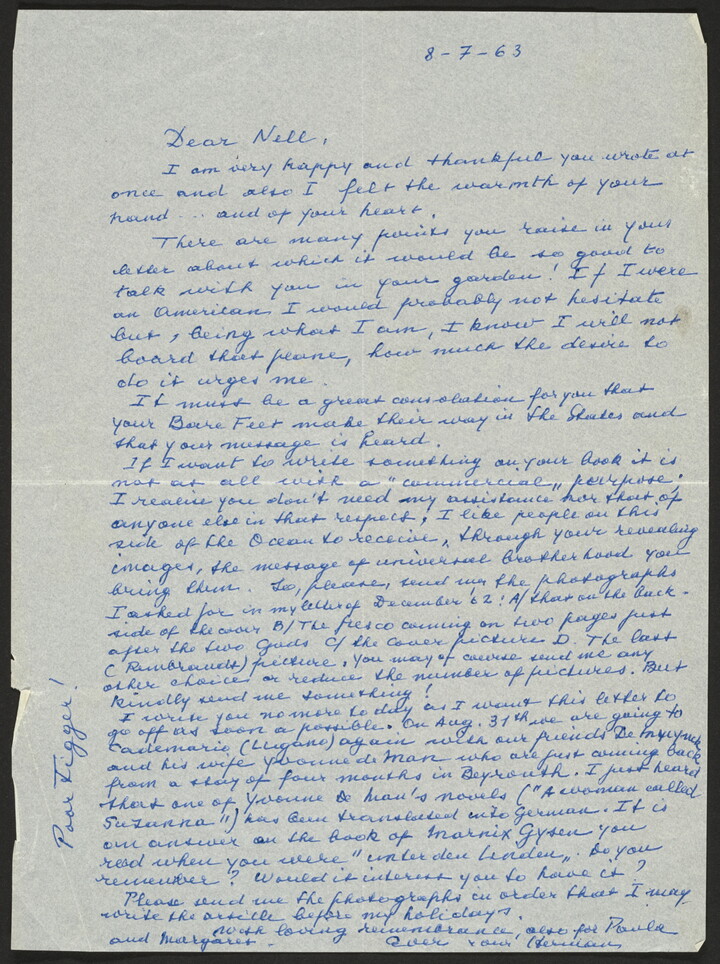 8-7-63
Dear Nell,
I am very happy and thankful you wrote at
once and also I felt the warmth of your
hand ... and of your heart.
There are many points you raise in your
letter about which it would be so good to
talk with you in your garden! If I were
an American I would probably not hesitate
but, being what I am, I know I will not
board that plane, how much the desire to
do it urges me.
It must be a great consolation for you that
your Bare Feet make their way in the States and
that your message is heard.
If I want to write something on your book it is
not at all with a "commercial„ purpose.
I realise you don't need my assistance nor that of
anyone else in that respect, I like people on this
side of the Ocean to receive, through your revealing
images, the message of universal brotherhood you
bring them. So, please, send me the photographs
I asked for in my letter of December '62! A/ that on the back-
side of the cover B/ The fresco coming on two pages just
after the two Gods C/ the cover picture D. The last
(Rembrandt) picture. You may of course send me any
other choice or reduce the number of pictures. But
kindly send me something!
I write you no more to day as I want this letter to
go off as soon a possible. On Aug. 31th we are going to
Cademario (Lugano) again with our friends De Muynck
and his wife Yvonne de Man who are just coming back
from a stay of four months in Beyrouth. I just heard
that one of Yvonne De Man's novels ("A woman called
Suzanna") has been translated into German. It is
an answer on the book of Marnix Gysen you
read when you were "unter den Linden„. Do you
remember? Would it interest you to have it?
Please send me the photographs in order that I may
write the article before my holidays.
With loving remembrance, also for Paula
and Margaret. Ever your Herman
Poor Tigger!